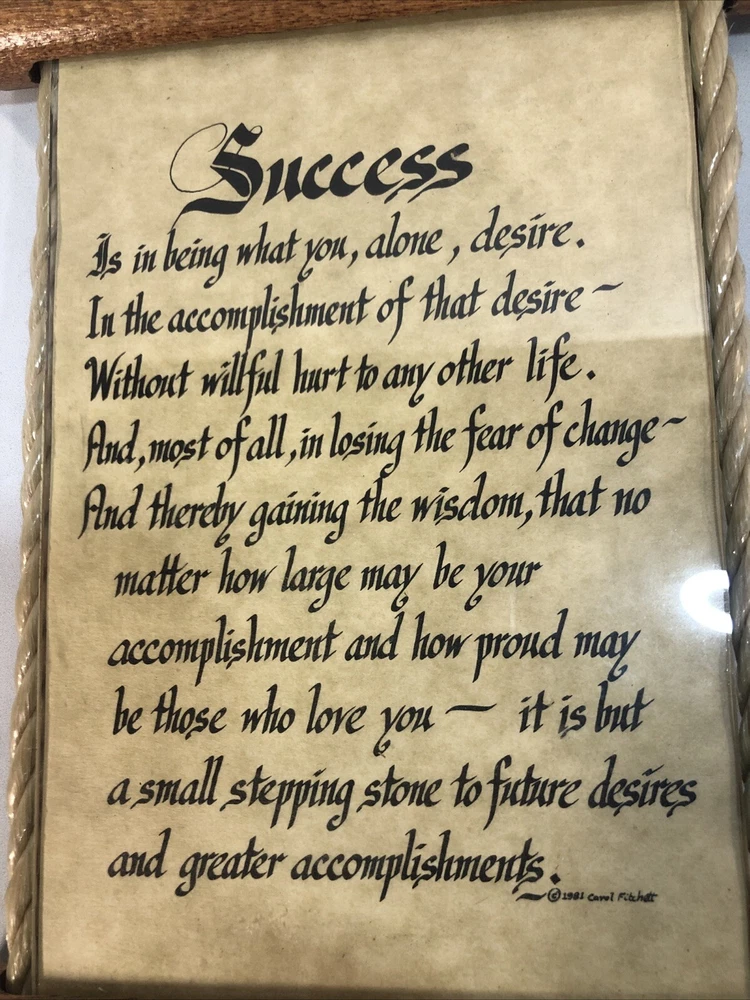 Success
Is in being what you, alone, desire.
In the accomplishment of that desire ~
Without willful hurt to any other life.
And, most of all, in losing the fear of change ~
And thereby gaining the wisdom, that no
matter how large may be your
accomplishment and how proud may
be those who love you — it is but
a small stepping stone to future desires
and greater accomplishments.
©1981 Carol Fitchett